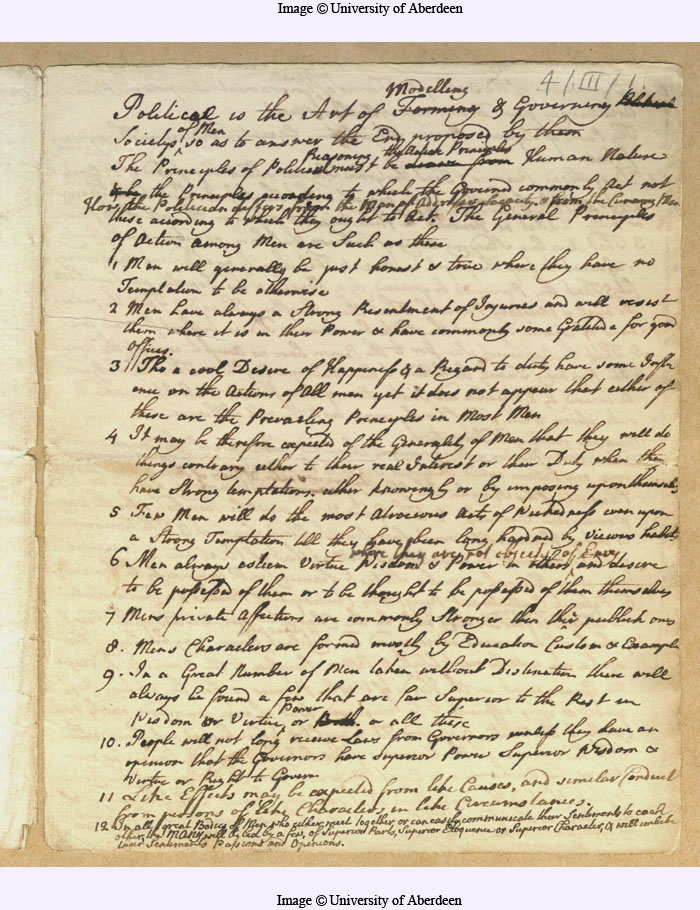 Image © University of Aberdeen
4/III/1
Modelling
Political is the Art of Forming & Governing
of Men
Societys so as to answer the End proposed by them
Reasoning
The Principles of Politics must be from Human Nature
the Principles according to which the Governd commonly Act not
How the Politician differs from the Man of Address & Sagacity & from the Cunning Man
these according to which they ought to Act. The General Principles
of Action among Men are Such as these
1 Men will generally be just honest & true where they have no
Temptation to be otherwise
2 Men have always a Strong Resentment of Injuries and will resist
them where it is in their Power & have commonly some Gratitude for good
offices.
3 Tho a cool Desire of Happiness & a Regard to duty have some Influ
ence on the Actions of All men yet it does not appear that either of
these are the Prevailing Principles in Most Men
4 It may be therefore expected of the Generality of Men that they will do
things contrary either to their real Interest or their Duty when they
have Strong temptations. either knowingly or by imposing upon themselves
5 Few Men will do the most Atrocious Acts of Wickedness even upon
a Strong Temptation till they have been long hardned by vicious habits
where they are not objects of Envy
6 Men always esteem Virtue Wisdom & Power in others, and desire
to be possessed of them or to be thought to be possessed of them themselves
7 Mens private Affections are commonly Stronger then this publick ones
8. Mens Characters are formed mostly by Education Custom & Example
9. In a Great Number of Men taken without Distinction there will
always be found a few that are far Superior to the Rest in
Power
Wisdom or Virtue, or Both. or all these
10. People will not long receive Laws from Governors unless they have an
opinion that the Governors have Superior Power Superior Wisdom &
Virtue or Right to Govern
11 Like Effects may be expected from like Causes, and similar Conduct
from persons of like Characters in like Circumstances.
12 In all great Bodies of Men who either meet together, or can easily communicate their Sentiments to each
other, the MANY will be led by a few, of Superior Parts, Superior Eloquence or Superior Character, & will imbibe
their Sentiments Passions and Opinions.
Image © University of Aberdeen